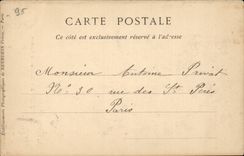 95
CARTE POSTALE
Ce côté est exclusivement réservé à l'adresse
Monsieur Antoine Privat
N° 30 rue des Sts Pères
Paris